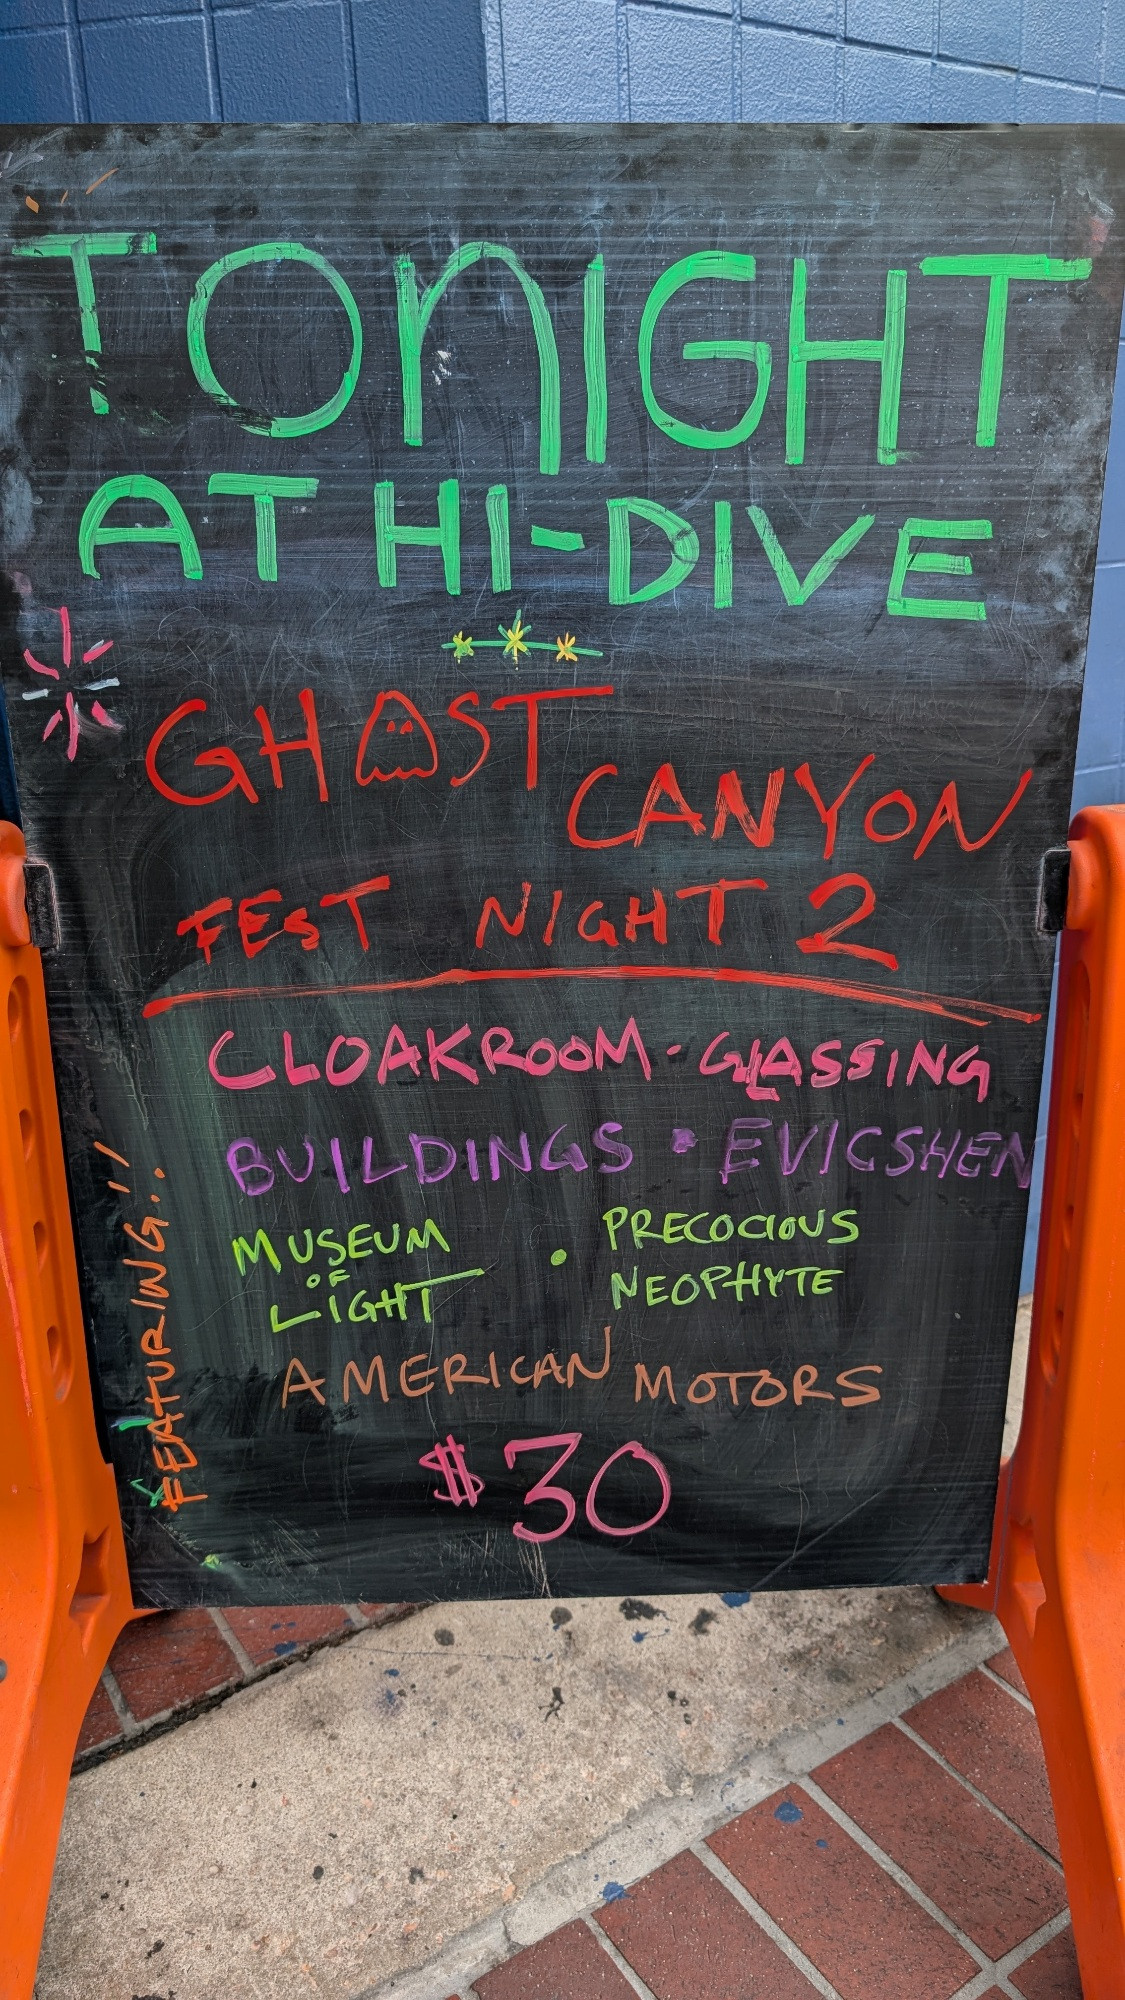 TONIGHT
AT HI-DIVE
GHOST CANYON
FEST NIGHT 2
FEATURING!!
CLOAKROOM · GLASSING
BUILDINGS · EVICSHEN
MUSEUM OF LIGHT · PRECOCIOUS NEOPHYTE
AMERICAN MOTORS
$30